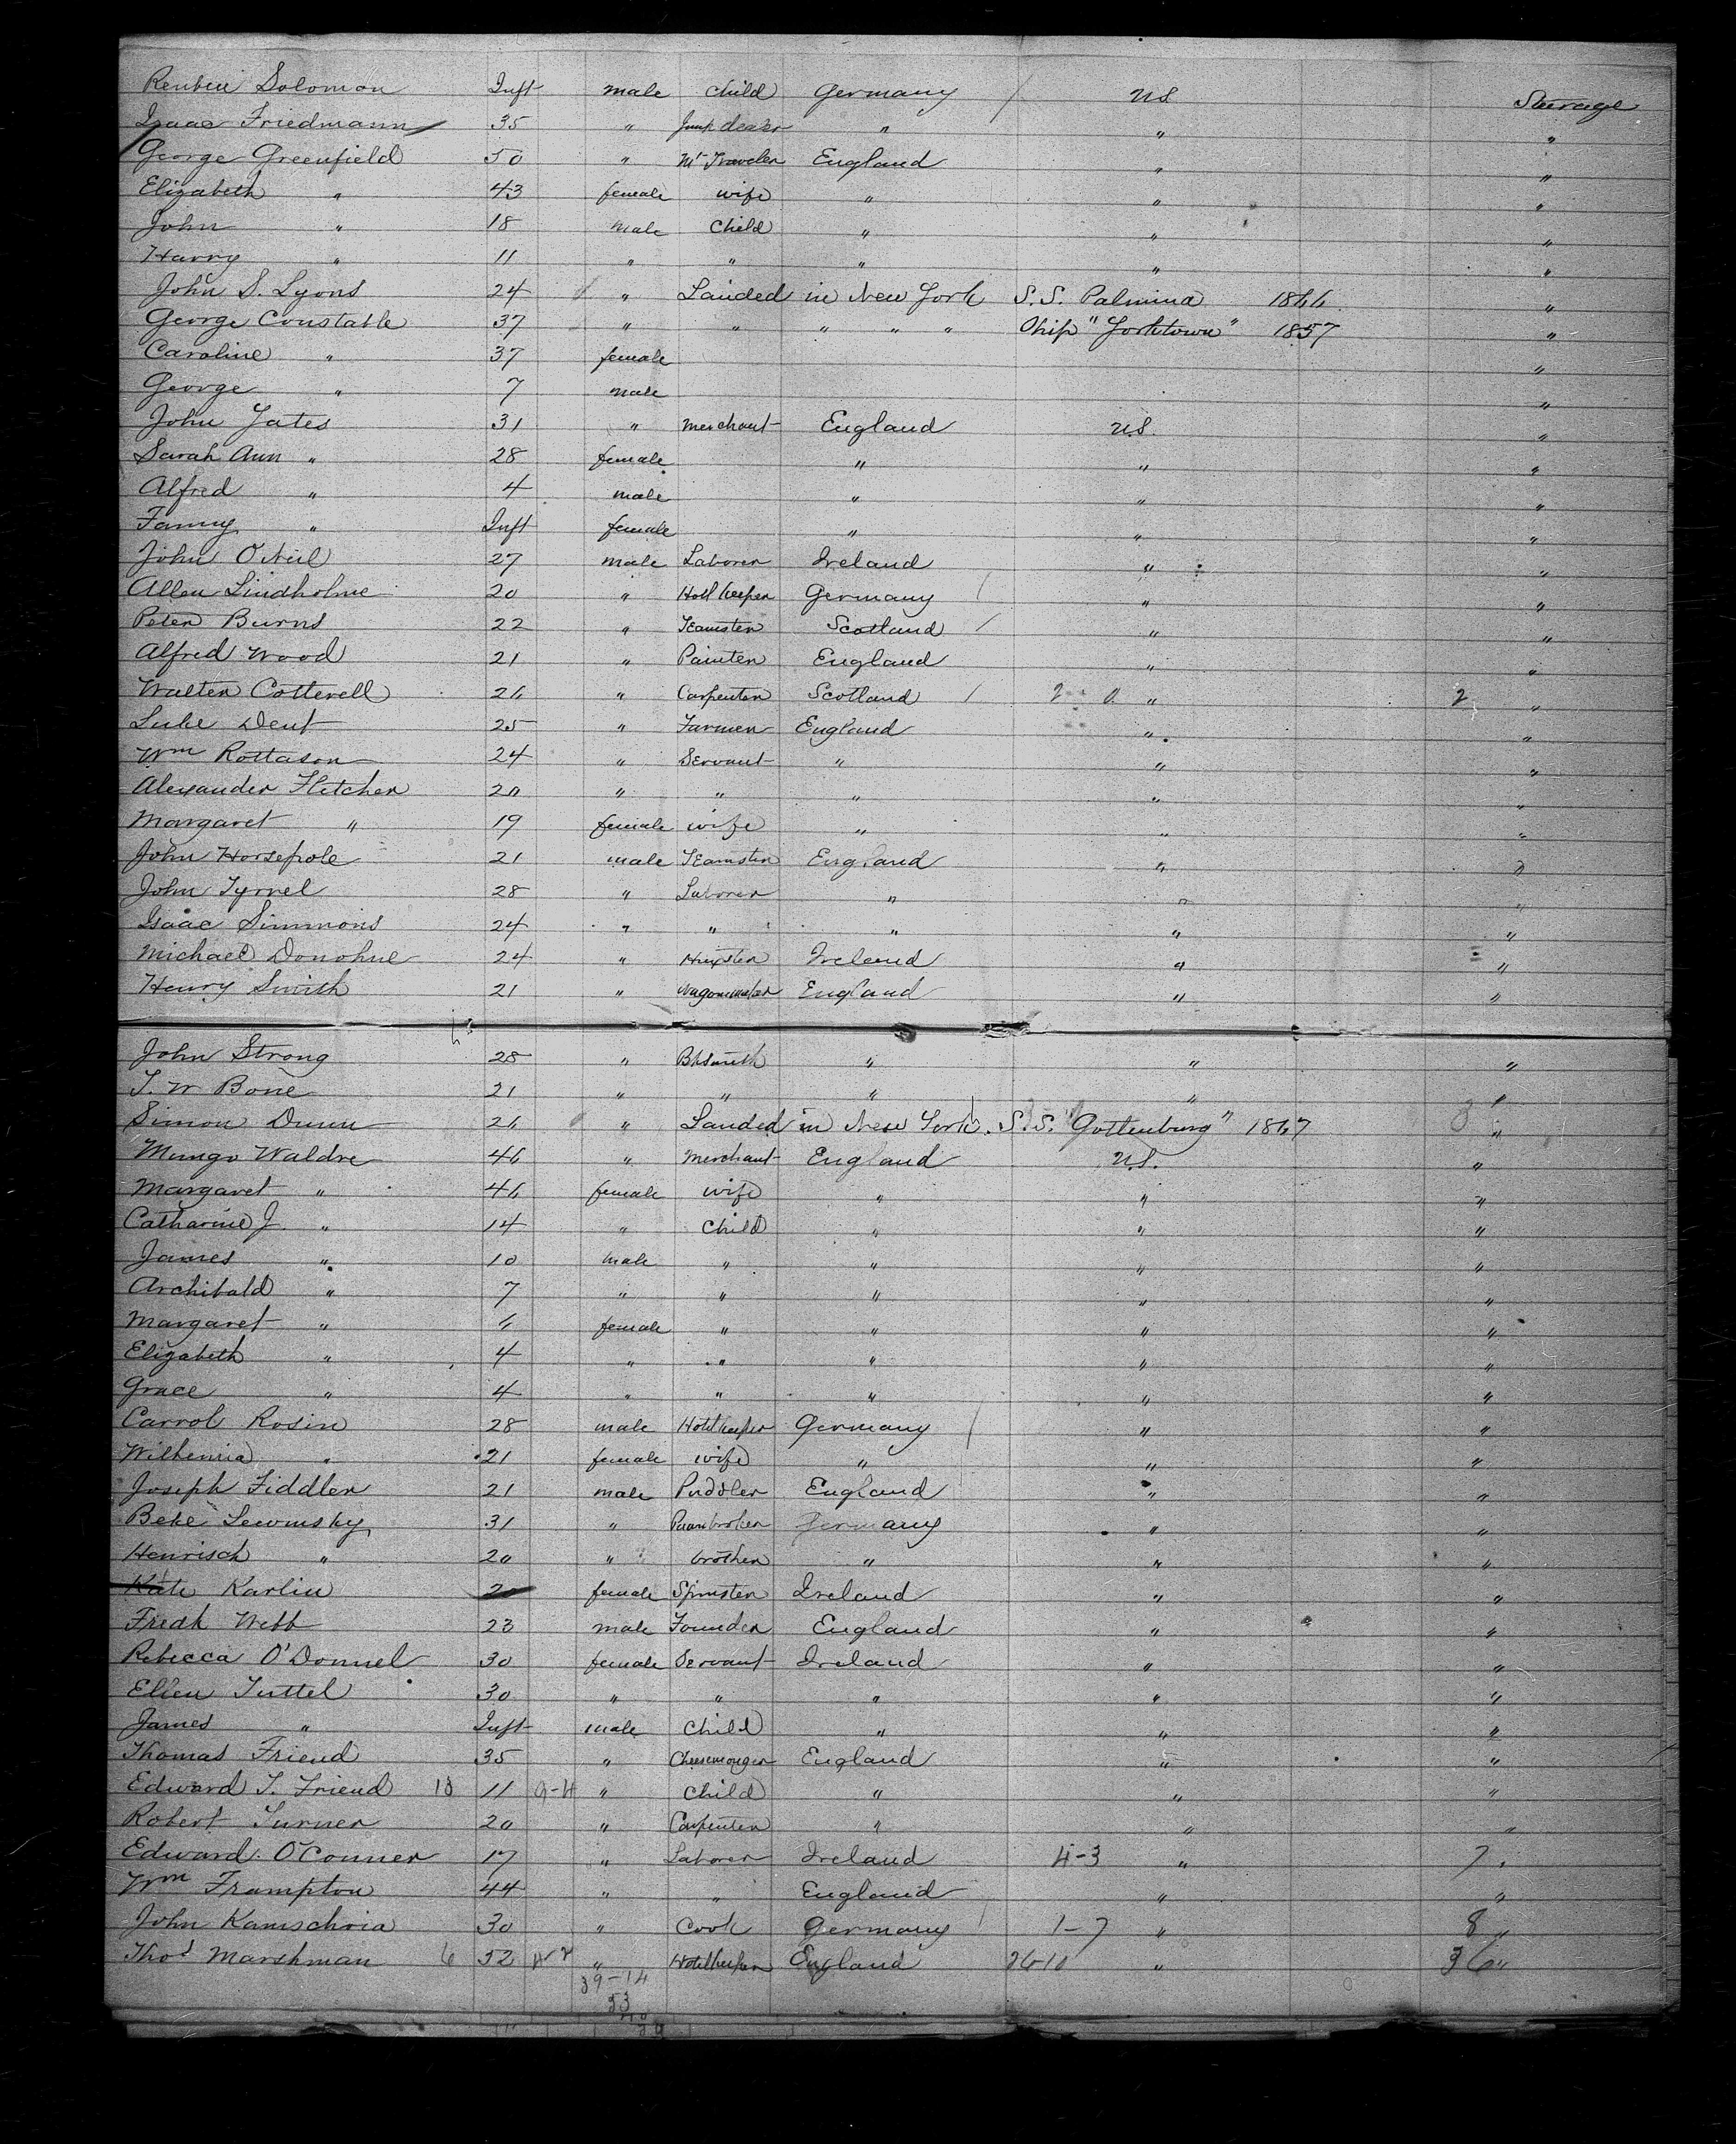 Reuben Solomon Inft male child Germany / US Steerage
Isaac Friedmann 35 " Junk dealer " " "
George Greenfield 50 " Mt Traveler England " "
Elizabeth " 43 female wife " " "
John " 18 male child " " "
Harry " 11 " " " " "
John S. Lyons 24 " Landed in New York S.S. Palmina 1866 "
George Constable 37 " " " " " Ship "Yorktown" 1857 "
Caroline " 37 female "
George " 7 male "
John Yates 31 " merchant England U.S. "
Sarah Ann " 28 female " " "
Alfred " 4 male " " "
Fanny " Inft female " " "
John O'Neil 27 male Laborer Ireland " "
Allen Lindholme 20 " Hotl keeper Germany / " "
Peter Burns 22 " Teamster Scotland / " "
Alfred Wood 21 " Painter England " "
Walter Cotterell 26 " Carpenter Scotland / 2 0 " 2 "
Luke Dent 25 " Farmer England " "
Wm Rottason 24 " Servant " " "
Alexander Fletcher 20 " " " " "
Margaret " 19 female wife " " "
John Horsepole 21 male Teamster England " "
John Tyrnel 28 " Laborer " " "
Isaac Simmons 24 " " " " "
Michael Donohue 24 " Huxster Ireland " "
Henry Smith 21 " Wagonmaker England " "
John Strong 28 " Bksmith " " "
T. W Bone 21 " " " " "
Simon Dunn 26 " Landed in New York. S.S. "Gottenburg" 1867 "
Mungo Waldre 46 " Merchant England U.S. "
Margaret " 46 female wife " " "
Catharine J. " 14 " child " " "
James " 10 male " " " "
Archibald " 7 " " " " "
Margaret " 6 female " " " "
Elizabeth " 4 " " " " "
Grace " 4 " " " " "
Carrol Rosin 28 male Hotelkeeper Germany / " "
Wilhemia " 21 female wife " " "
Joseph Fiddler 21 male Puddler England " "
Beke Lewinsky 31 " Pawnbroker Germany " "
Henrisch " 20 " brother " " "
Kate Karlin 20 female Spinster Ireland " "
Fredk Webb 23 male Founder England " "
Rebecca O'Donnel 30 female Servant Ireland " "
Ellen Tuttel 30 " " " " "
James " Inft male child " " "
Thomas Friend 35 " Cheesemonger England " "
Edward T. Friend 10 11 9-4 " child " " "
Robert Turner 20 " Carpenter " " "
Edward O'Conner 17 " Laborer Ireland 4-3 " 7 "
Wm Frampton 44 " " England " "
John Kamschria 30 " Cook Germany / 1-7 " 8 "
Thos Marshman 6 52 " Hotelkeeper England 26-10 " 36 "
39-14
53